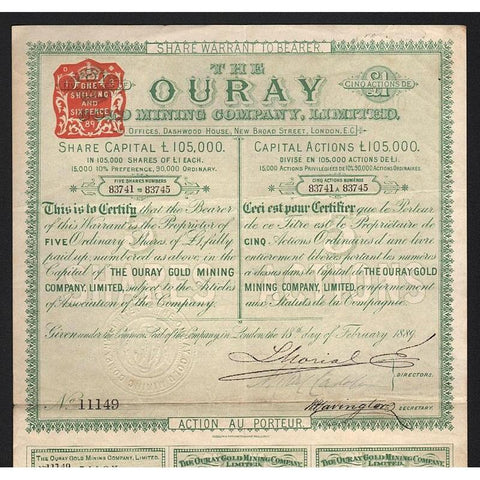 SHARE WARRANT TO BEARER
THE
OURAY
GOLD MINING COMPANY, LIMITED.
ONE
SHILLING
AND
SIX PENCE
CINQ ACTIONS DE
£1
OFFICES, DASHWOOD HOUSE, NEW BROAD STREET, LONDON. E.C.
SHARE CAPITAL £105,000.
IN 105,000 SHARES OF £1 EACH.
15,000 10% PREFERENCE, 90,000 ORDINARY.
FIVE SHARES NUMBERS
83741 = 83745
CAPITAL ACTIONS £105,000.
DIVISÉ EN 105,000 ACTIONS DE £1.
15,000 ACTIONS PRIVILÉGIÉES DE 10%, 90,000 ACTIONS ORDINAIRES.
CINQ ACTIONS NUMÉROS
83741 À 83745
This is to Certify that the Bearer
of this Warrant is the Proprietor of
FIVE Ordinary Shares of £1, fully
paid up, numbered as above in the
Capital of THE OURAY GOLD MINING
COMPANY, LIMITED, subject to the Articles
of Association of the Company.
Ceci est pour Certifier que le Porteur
de ce Titre est le Propriétaire de
CINQ Actions Ordinaires d'une livre
entièrement libérée portant les numéros
ci dessus dans le Capital de THE OURAY GOLD
MINING COMPANY, LIMITED, conformement
aux Statuts de la Compagnie.
Given under the Common Seal of the Company in London the 18th day of February 1889
DIRECTORS.
No 11149
SECRETARY.
ACTION AU PORTEUR.
THE OURAY GOLD MINING COMPANY, LIMITED.
THE OURAY GOLD MINING COMPANY
LIMITED.
THE OURAY GOLD MINING COMPANY
LIMITED.